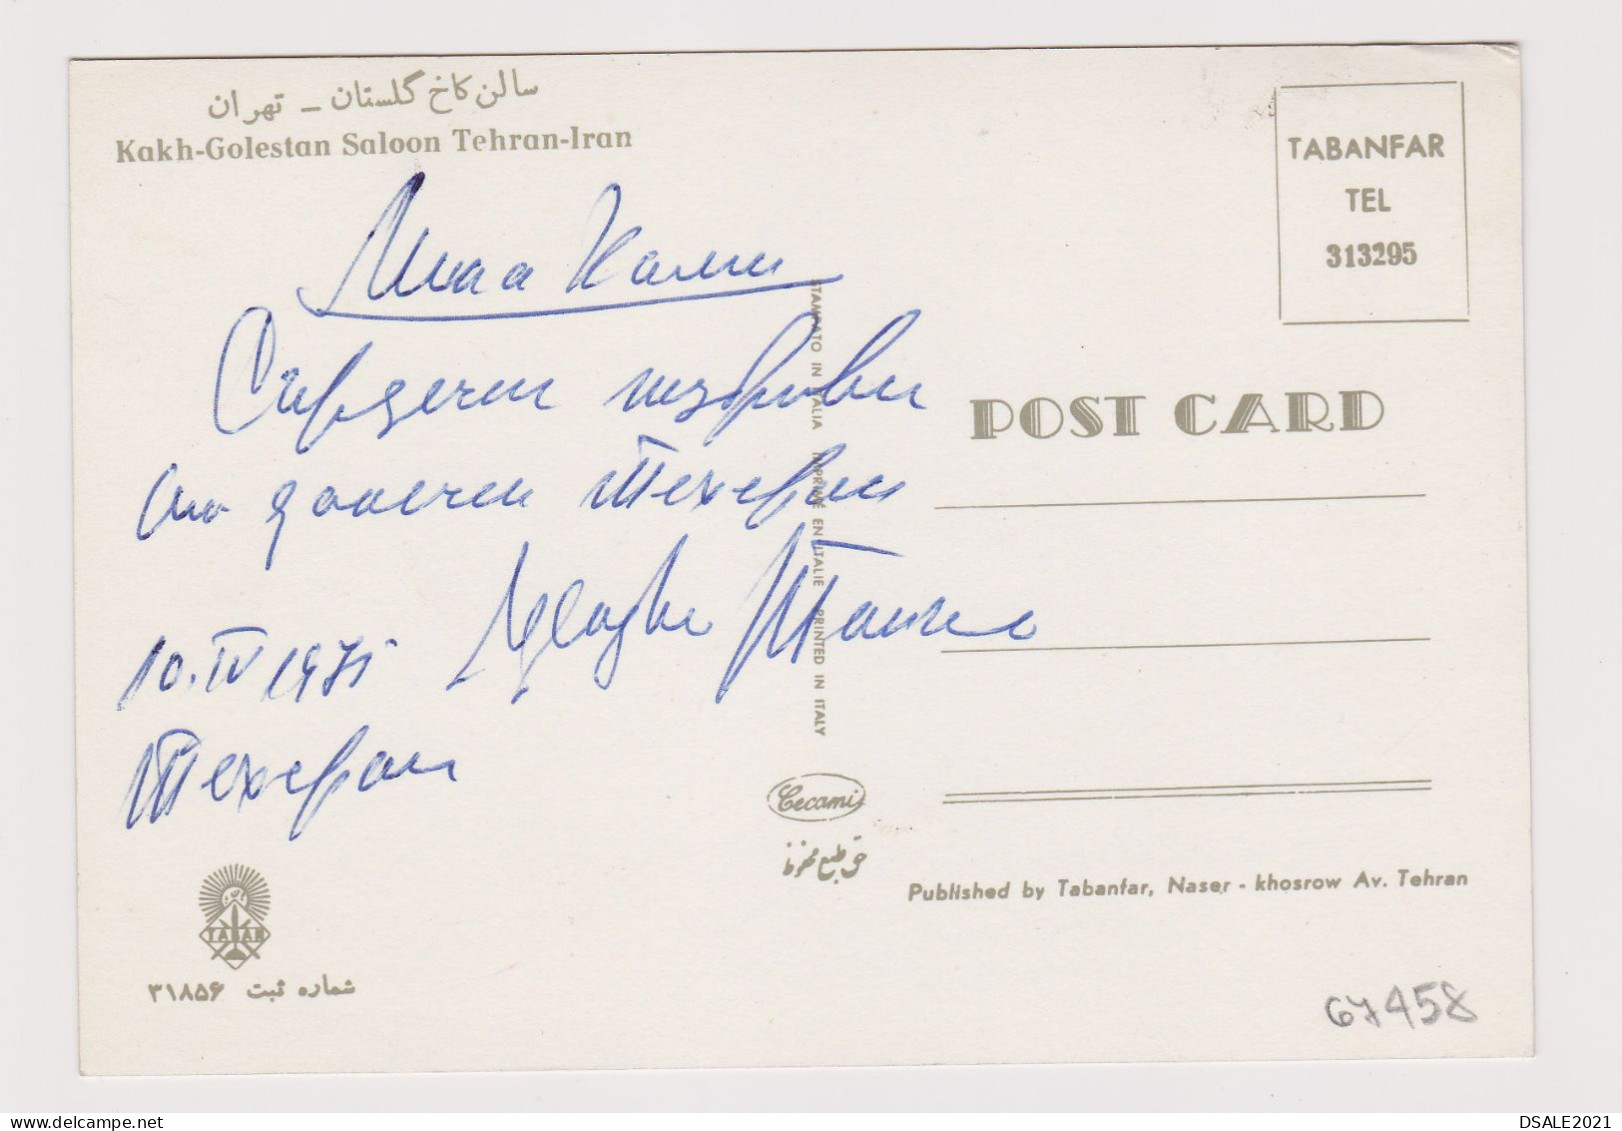 سالن کاخ گلستان – تهران
Kakh-Golestan Saloon Tehran-Iran
TABANFAR
TEL
313295
Мила Калин
Сърдечни поздрави
от далечен Техеран
10.IV 1975
Техеран
STAMPATO IN ITALIA IMPRIMÉ EN ITALIE PRINTED IN ITALY
POST CARD
Cecami
حق طبع محفوظ
Published by Tabanfar, Naser - khosrow Av. Tehran
TABAN
شماره ثبت ۳۱۸۵۶
67458
DSALE2021